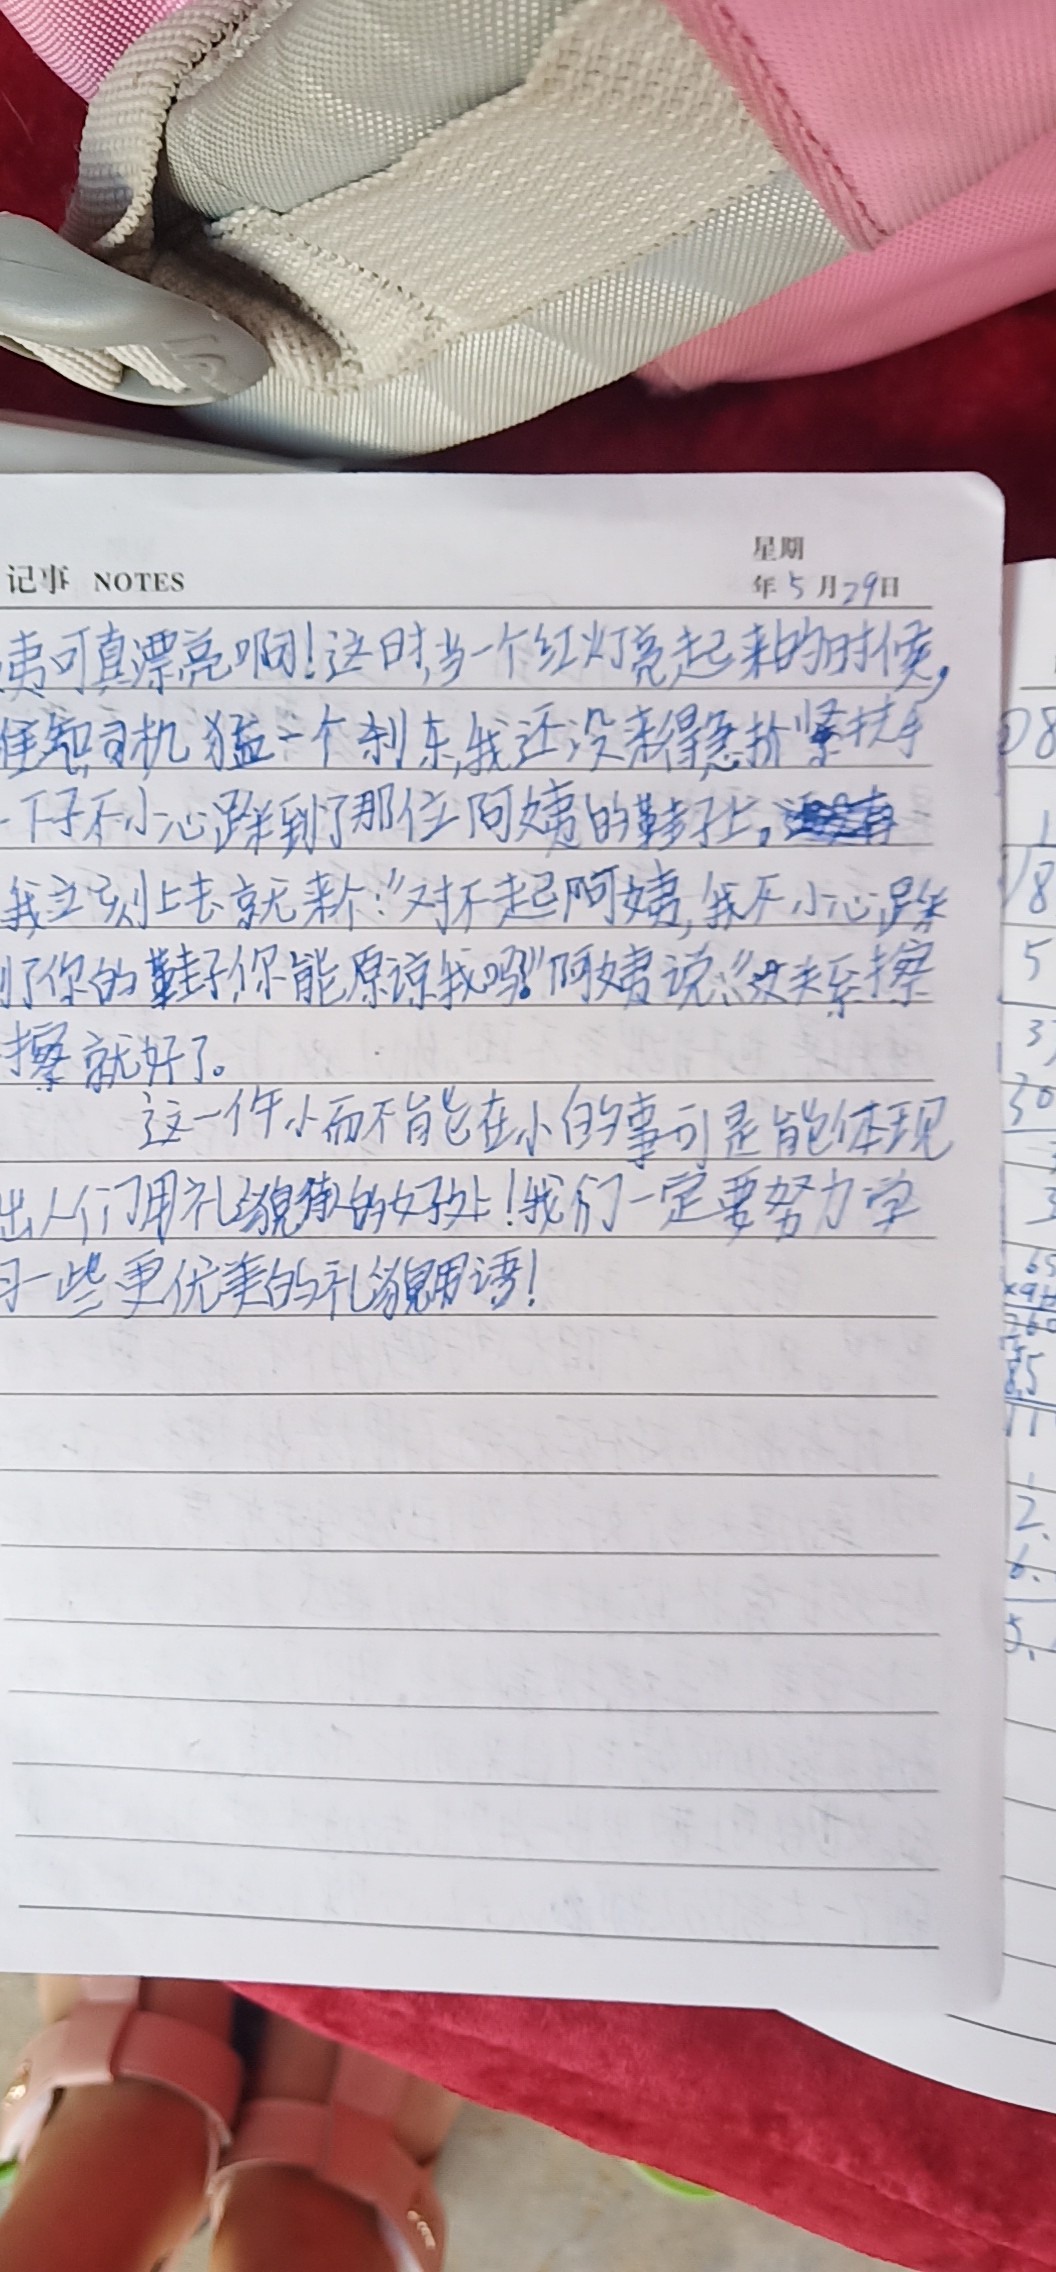 星期
记事 NOTES 年5月29日
姨可真漂亮啊!这时,当一个红灯亮起来的时候,
谁知,司机猛一个刹车,我还没来得急扮紧扶手
一下子不小心踩到了那位阿姨的鞋子上,
我立刻上去就来个:“对不起阿姨,我不小心踩
到了你的鞋子,你能原谅我吗?”阿姨说:“没关系擦
擦就好了。
这一件小而不能在小的事可是能体现
出人们用礼貌的好处!我们一定要努力学
习一些更优美的礼貌用语!
08
1
18
5
37
30
3
65
85
11
2.
6.
5.